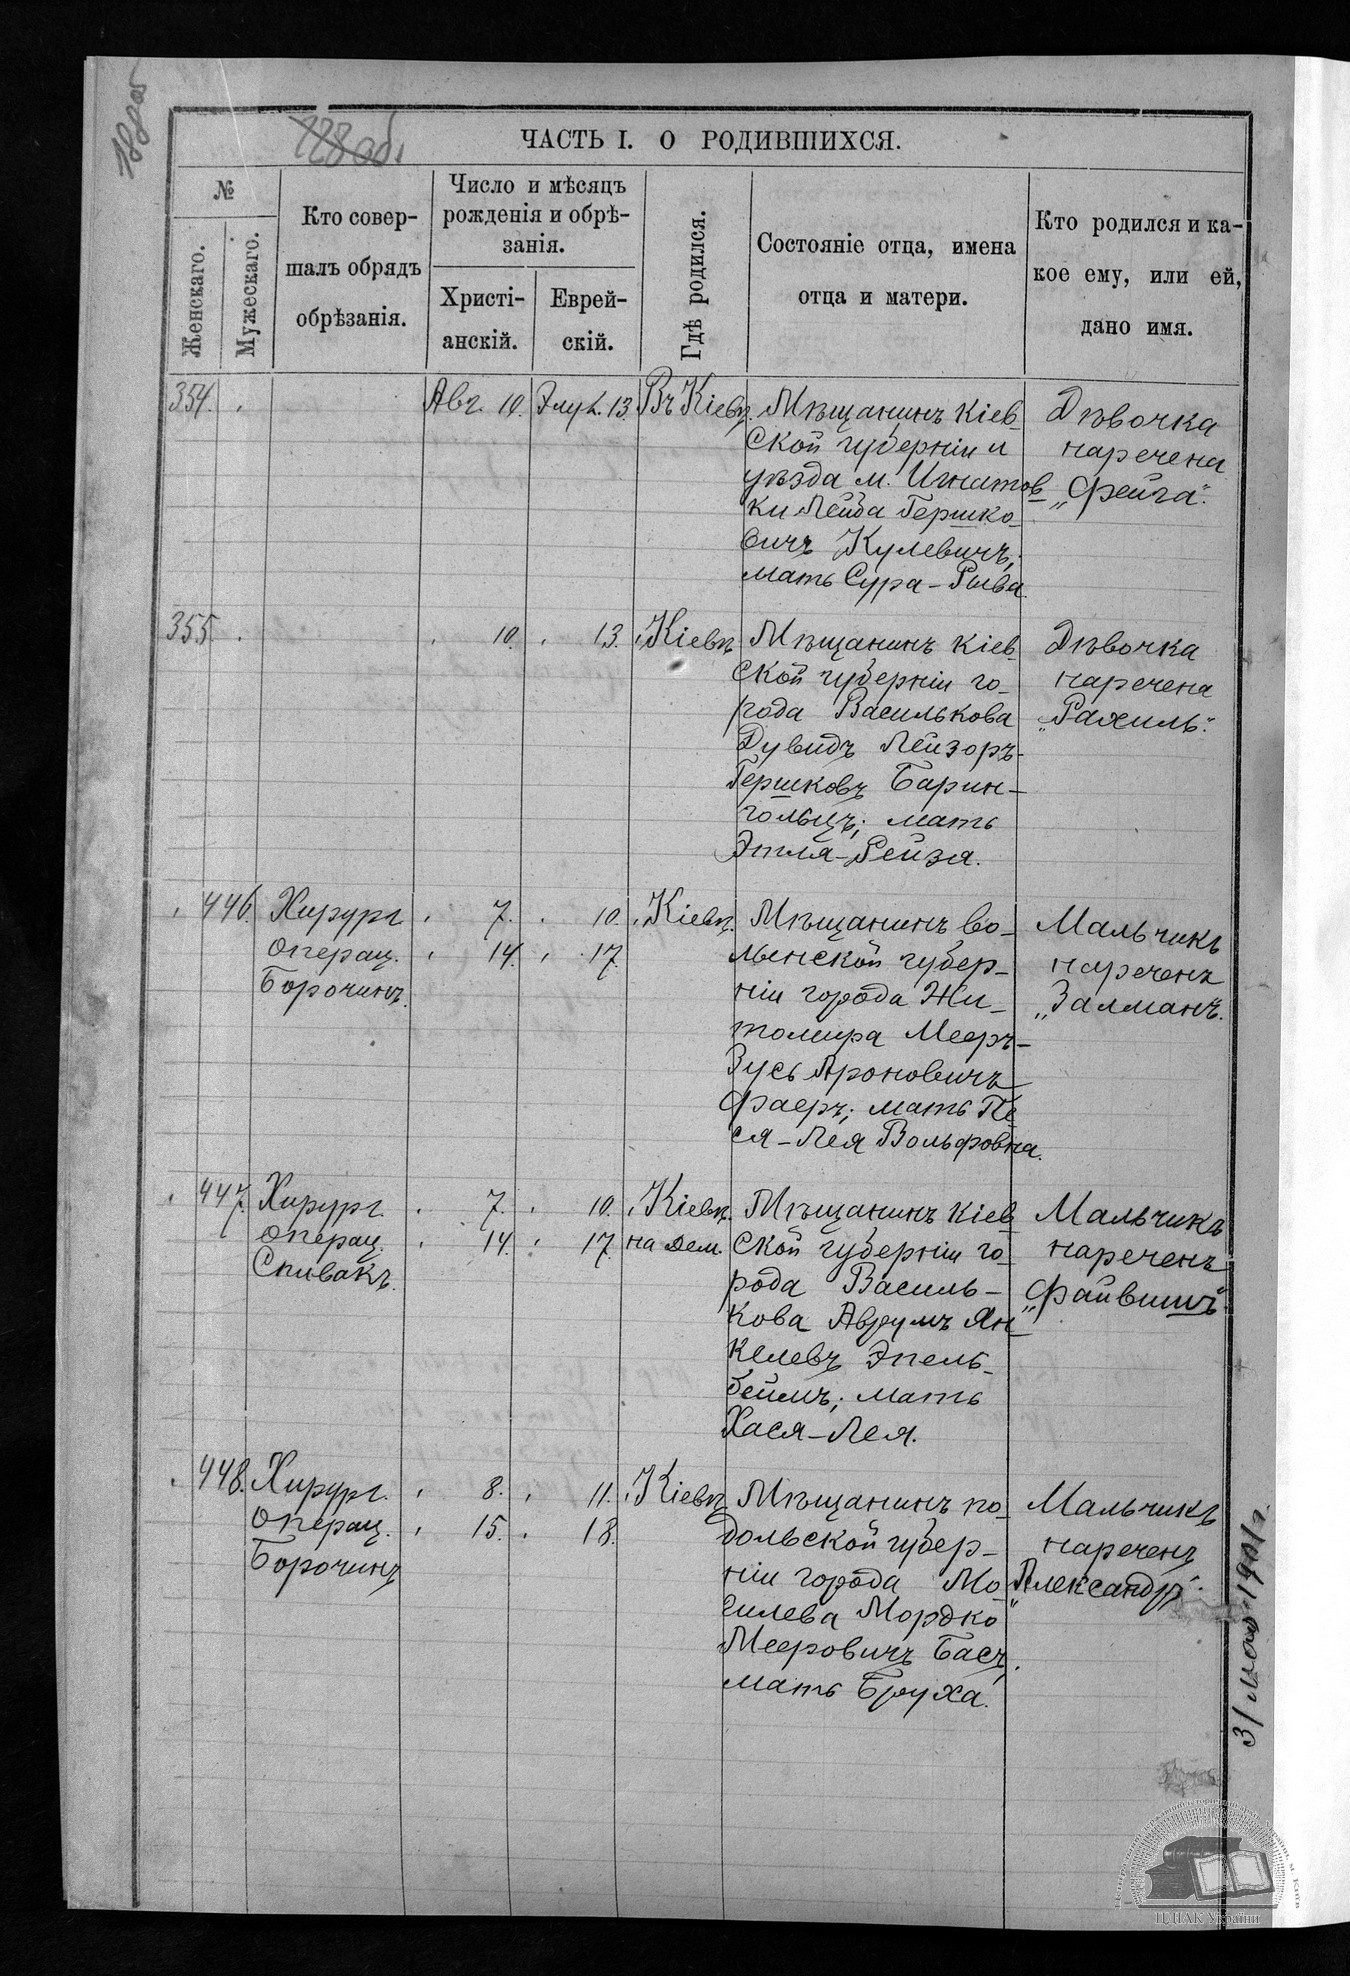 188об
128 об.
ЧАСТЬ I. О РОДИВШИХСЯ.
№
Женскаго.
Мужескаго.
Кто совер-
шалъ обрядъ
обрѣзанія.
Число и мѣсяцъ
рожденія и обрѣ-
занія.
Христі-
анскій.
Еврей-
скій.
Гдѣ родился.
Состояніе отца, имена
отца и матери.
Кто родился и ка-
кое ему, или ей,
дано имя.
354.
Авг. 10. Элул. 13. Въ Кіевѣ.
Мѣщанинъ Кіев-
ской губерніи и
уѣзда м. Игнатов-
ки Лейба Гершко-
вичъ Кулевичъ,
мать Сура-Рыва.
Дѣвочка
наречена
„Фейга".
355.
10. 13. Кіевѣ
Мѣщанинъ Кіев-
ской губерніи го-
рода Василькова
Дувидъ Лейзоръ-
Гершковъ Барин-
гольцъ; мать
Этля-Рейза.
Дѣвочка
наречена
„Рахиль".
446. Хирург.
операц.
Борочинъ.
7. 10. Кіевѣ.
14. 17.
Мѣщанинъ во-
лынской губер-
ніи города Жи-
томира Мееръ-
Зусь Ароновичъ
Фаеръ; мать Пе-
ся-Лея Вольфовна.
Мальчикъ
нареченъ
„Залманъ".
447. Хирург.
операц.
Спивакъ.
7. 10. Кіевѣ.
14. 17. на Дем.
Мѣщанинъ Кіев-
ской губерніи го-
рода Василь-
кова Аврумъ Ян-
келевъ Эпель-
беймъ; мать
Хася-Лея.
Мальчикъ
нареченъ
„Файвишъ".
448. Хирург.
операц.
Борочинъ
8. 11. Кіевѣ
15. 18.
Мѣщанинъ по-
дольской губер-
ніи города Мо-
гилева Мордко
Мееровичъ Басъ,
мать Бруха.
Мальчикъ
нареченъ
„Александръ".
31 мая 1901 г.
ЦДІАК України